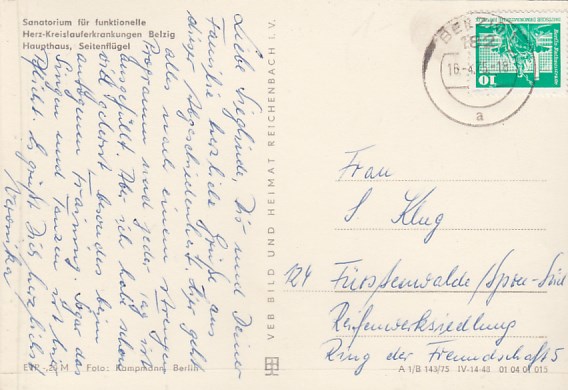 Sanatorium für funktionelle
Herz-Kreislauferkrankungen Belzig
Haupthaus, Seitenflügel
Liebe Sieglinde, Dir und Deiner
Familie herzliche Grüße aus
dieser Abgeschiedenheit. Hier geht
alles nach einem strengen
Programm und jeder Tag ist
ausgefüllt. Aber ich habe schon
viel gelernt besonders beim
autogenen Training. Sogar das
Singen und Tanzen ist hier
Pflicht. Es grüßt Dich herzlichst
Veronika
EVP -,20 M Foto: Kampmann, Berlin
VEB BILD UND HEIMAT REICHENBACH I. V.
BELZIG
182
a
10
DEUTSCHE DEMOKRATISCHE REPUBLIK
Frau
S. Klug
124 Fürstenwalde/Spree-Süd
Reifenwerksiedlung
Ring der Freundschaft 5
A 1/B 143/75 IV-14-48 01 04 01 015